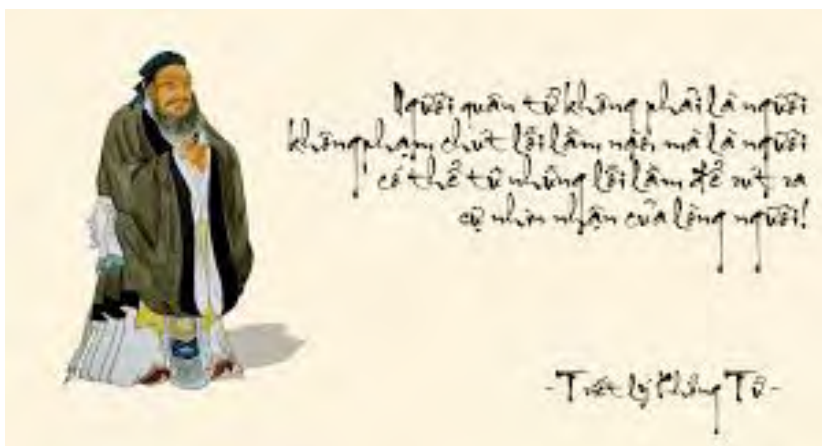 Người quân tử không phải là người
không phạm chút lỗi lầm nào, mà là người
có thể từ những lỗi lầm để rút ra
sự nhìn nhận của lòng người!
-Triết lý Khổng Tử-